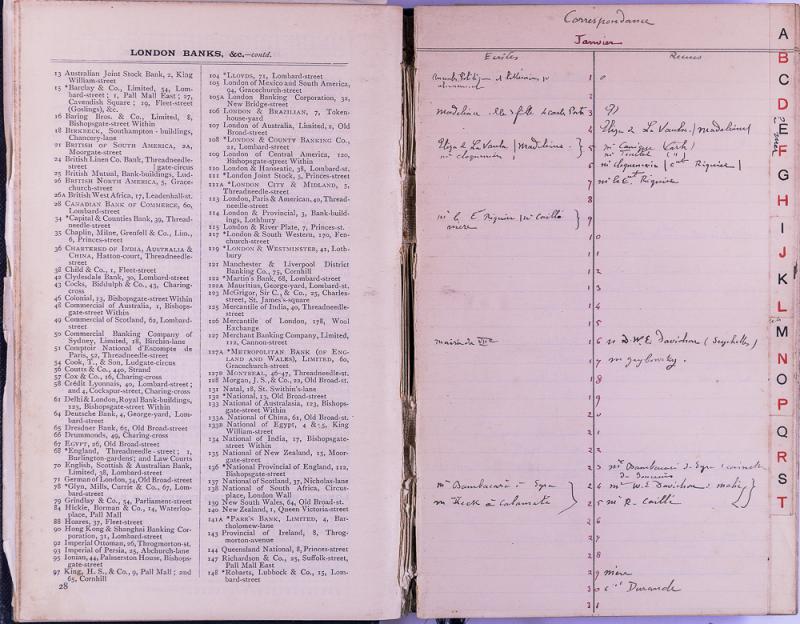 LONDON BANKS, &c.—contd.
13 Australian Joint Stock Bank, 2, King
William-street
15 *Barclay & Co., Limited, 54, Lom-
bard-street; 1, Pall Mall East; 27,
Cavendish Square; 19, Fleet-street
(Goslings), &c.
16 Baring Bros. & Co., Limited, 8,
Bishopsgate-street Within
18 BIRKBECK, Southampton-buildings,
Chancery-lane
21 BRITISH OF SOUTH AMERICA, 2A,
Moorgate-street
24 British Linen Co. Bank, Threadneedle-
street
25 British Mutual, Bank-buildings, Lud-
gate-circus
26 BRITISH NORTH AMERICA, 5, Grace-
church-street
26A British West Africa, 17, Leadenhall-st.
28 CANADIAN BANK OF COMMERCE, 60,
Lombard-street
34 *Capital & Counties Bank, 39, Thread-
needle-street
35 Chaplin, Milne, Grenfell & Co., Lim.,
6, Princes-street
36 CHARTERED OF INDIA, AUSTRALIA &
CHINA, Hatton-court, Threadneedle-
street
38 Child & Co., 1, Fleet-street
42 Clydesdale Bank, 30, Lombard-street
43 Cocks, Biddulph & Co., 43, Charing-
cross
46 Colonial, 13, Bishopsgate-street Within
48 Commercial of Australia, 1, Bishops-
gate-street Within
49 Commercial of Scotland, 62, Lombard-
street
50 Commercial Banking Company of
Sydney, Limited, 18, Birchin-lane
51 Comptoir National d'Escompte de
Paris, 52, Threadneedle-street
54 Cook, T., & Son, Ludgate-circus
56 Coutts & Co., 440, Strand
57 Cox & Co., 16, Charing-cross
58 Crédit Lyonnais, 40, Lombard-street;
and 4, Cockspur-street, Charing-cross
61 Delhi & London, Royal Bank-buildings,
123, Bishopsgate-street Within
64 Deutsche Bank, 4, George-yard, Lom-
bard-street
65 Dresdner Bank, 65, Old Broad-street
66 Drummonds, 49, Charing-cross
67 EGYPT, 26, Old Broad-street
68 *England, Threadneedle-street; 1,
Burlington-gardens; and Law Courts
70 English, Scottish & Australian Bank,
Limited, 38, Lombard-street
71 German of London, 34, Old Broad-street
78 *Glyn, Mills, Currie & Co., 67, Lom-
bard-street
79 Grindlay & Co., 54, Parliament-street
84 Hickie, Borman & Co., 14, Waterloo-
place, Pall Mall
88 Hoares, 37, Fleet-street
90 Hong Kong & Shanghai Banking Cor-
poration, 31, Lombard-street
92 Imperial Ottoman, 26, Throgmorton-st.
93 Imperial of Persia, 25, Abchurch-lane
95 Ionian, 44, Palmerston House, Bishops-
gate-street
97 King, H. S., & Co., 9, Pall Mall; and
65, Cornhill
28
104 *LLOYDS, 71, Lombard-street
105 London of Mexico and South America,
94, Gracechurch-street
105A London Banking Corporation, 32,
New Bridge-street
106 LONDON & BRAZILIAN, 7, Token-
house-yard
107 London of Australia, Limited, 2, Old
Broad-street
108 *LONDON & COUNTY BANKING CO.,
21, Lombard-street
109 London of Central America, 120,
Bishopsgate-street Within
110 London & Hanseatic, 38, Lombard-st.
111 *London Joint Stock, 5, Princes-street
111A *LONDON CITY & MIDLAND, 5,
Threadneedle-street
113 London, Paris & American, 40, Thread-
needle-street
114 London & Provincial, 3, Bank-build-
ings, Lothbury
115 London & River Plate, 7, Princes-st.
117 *London & South Western, 170, Fen-
church-street
119 *LONDON & WESTMINSTER, 41, Loth-
bury
121 Manchester and Liverpool District
Banking Co., 75, Cornhill
122 *Martin's Bank, 68, Lombard-street
122A Mauritius, George-yard, Lombard-st.
123 McGrigor, Sir C., & Co., 25, Charles-
street, St. James's-square
125 Mercantile of India, 40, Threadneedle-
street
126 Mercantile of London, 178, Wool
Exchange
127 Merchant Banking Company, Limited,
112, Cannon-street
127A *METROPOLITAN BANK (OF ENG-
LAND AND WALES), LIMITED, 60,
Gracechurch-street
127B MONTREAL, 46-47, Threadneedle-st.
128 Morgan, J. S., & Co., 22, Old Broad-st.
131 Natal, 18, St. Swithin's-lane
132 *National, 13, Old Broad-street
133 National of Australasia, 123, Bishops-
gate-street Within
133A National of China, 61, Old Broad-st.
133B National of Egypt, 4 & 5, King
William-street
134 National of India, 17, Bishopsgate-
street Within
135 National of New Zealand, 15, Moor-
gate-street
136 *National Provincial of England, 112,
Bishopsgate-street
137 National of Scotland, 37, Nicholas-lane
138 National of South Africa, Circus-
place, London Wall
139 New South Wales, 64, Old Broad-st.
140 New Zealand, 1, Queen Victoria-street
141A *PARR'S BANK, LIMITED, 4, Bar-
tholomew-lane
143 Provincial of Ireland, 8, Throg-
morton-avenue
144 Queensland National, 8, Princes-street
147 Richardson & Co., 25, Suffolk-street,
Pall Mall East
148 *Robarts, Lubbock & Co., 15, Lom-
bard-street
Correspondance
Janvier
Ecrites Reçues
1
2
3
4 Eliza de La Vaulx / Madeleine /
5
6
7
8
9
10
11
12
13
14
15
16 D. W. E. Davidson (Seychelles)
17
18
19
20
21
22
23
24
25
26
27
28
29 mère
30 Durande
31
A
B
C
D
E
F
G
H
I
J
K
L
M
N
O
P
Q
R
S
T